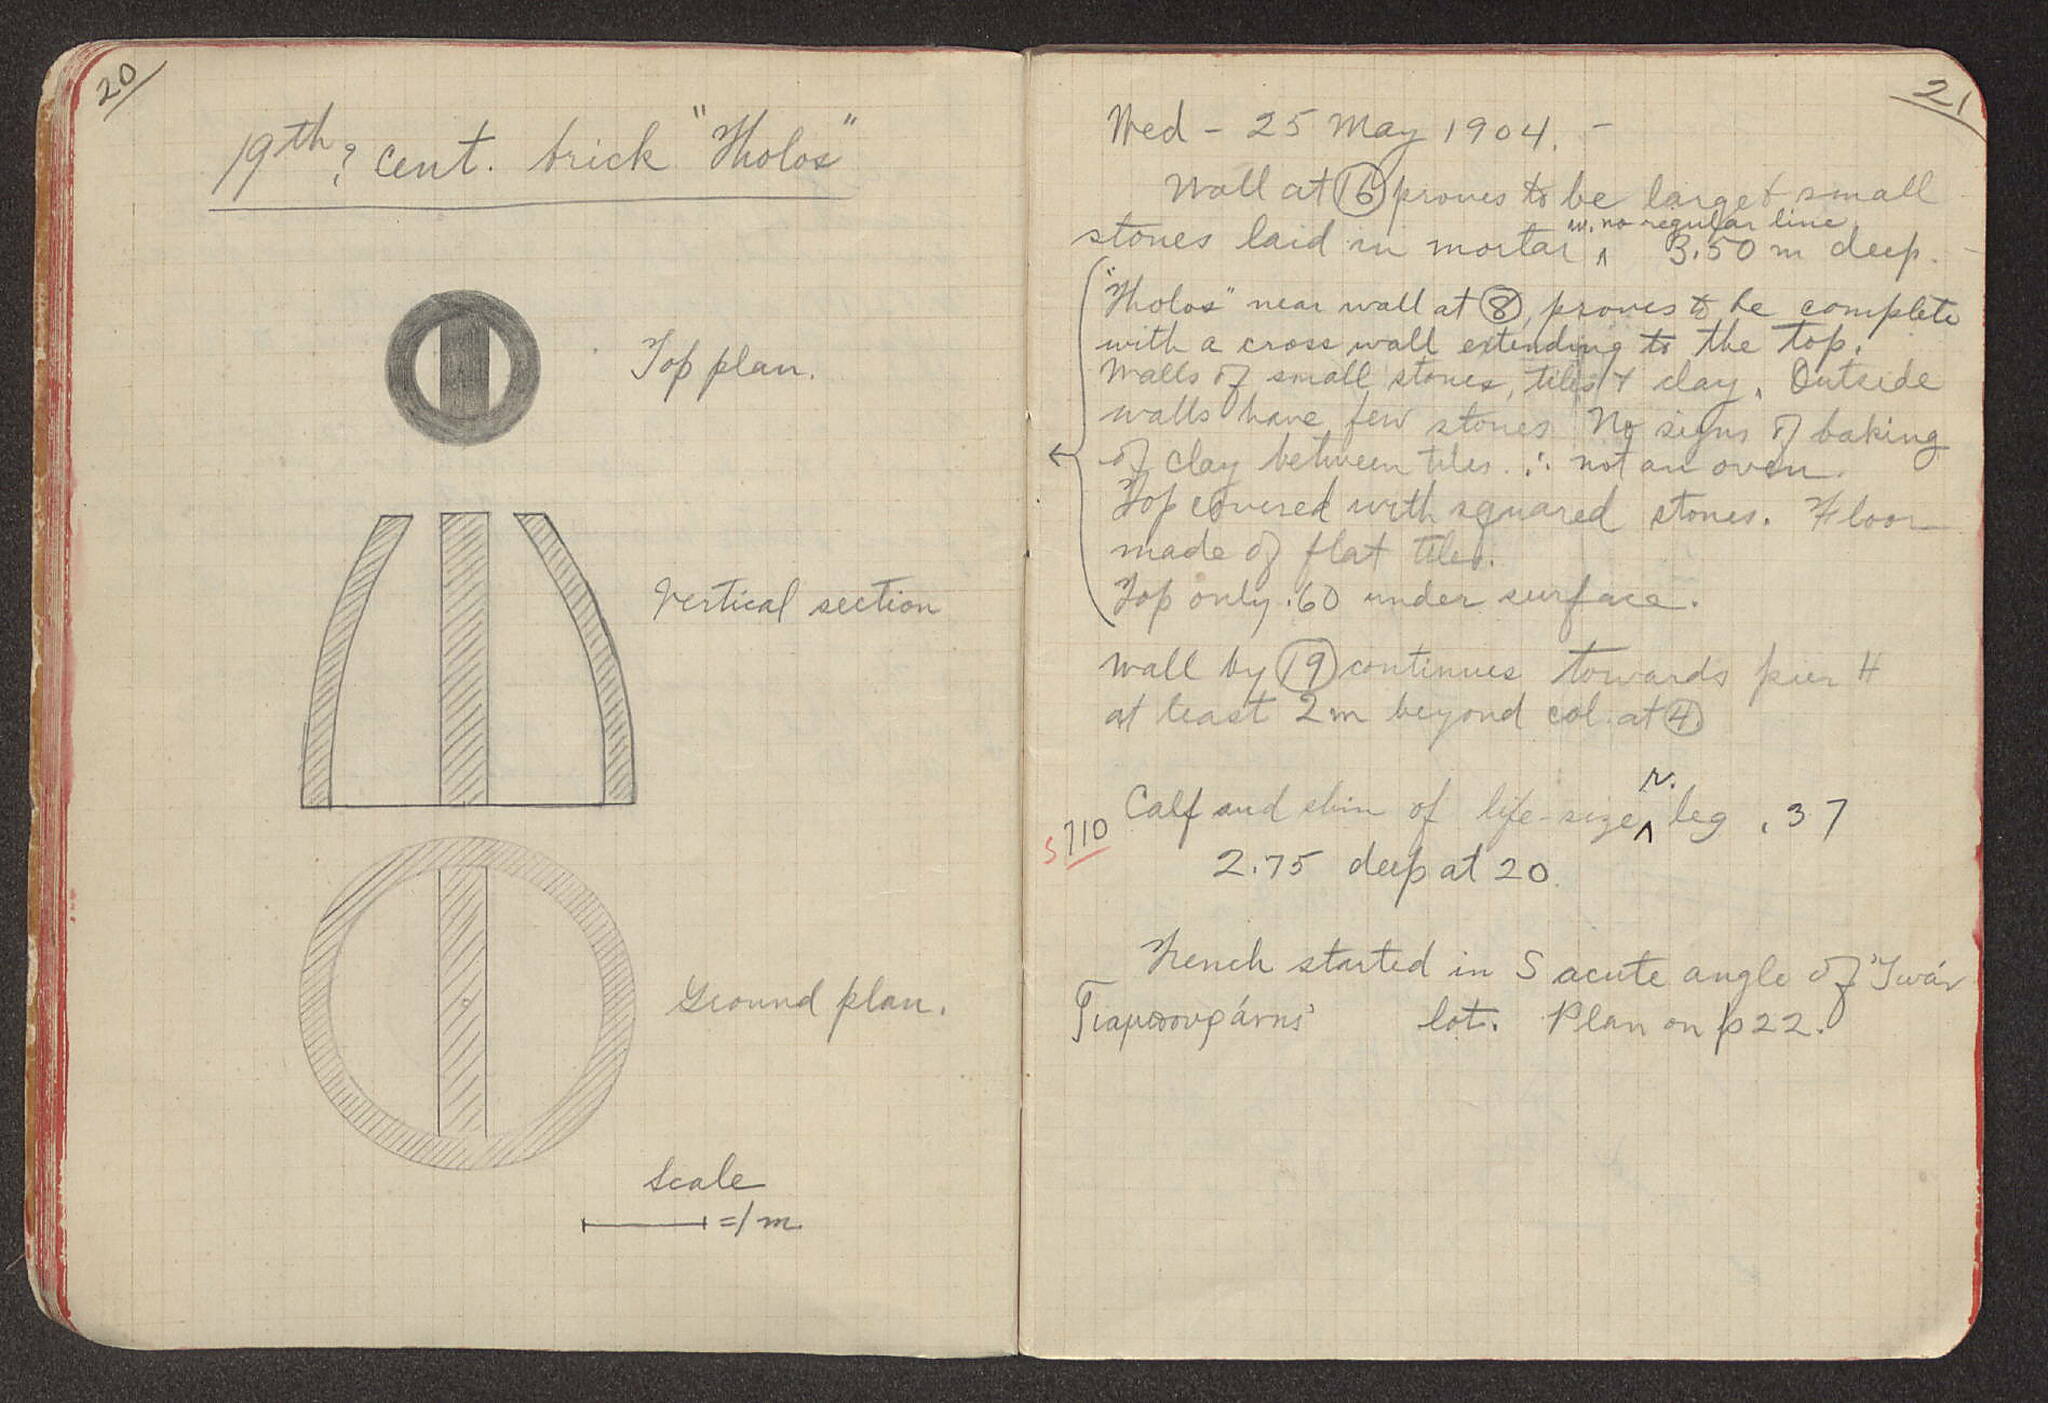 20
19th ? cent. brick "Tholos"
Top plan.
Vertical section
Ground plan.
Scale
= 1 m
21
Wed - 25 May 1904. -
Wall at 16 proves to be large & small
w. no regular line
stones laid in mortar ^ 3.50 m deep. -
"Tholos" near wall at 8, proves to be complete
with a cross wall extending to the top.
Walls of small stones, tiles & clay. Outside
walls have few stones No signs of baking
of clay between tiles. ∴ not an oven.
Top covered with squared stones. Floor
made of flat tiles.
Top only .60 under surface.
Wall by 19 continues towards pier H
at least 2 m beyond col. at 4.
r.
Calf and shin of life-size ^ leg .37
S 710
2.75 deep at 20.
Trench started in S acute angle of Ἰωάν
lot. Plan on p 22.